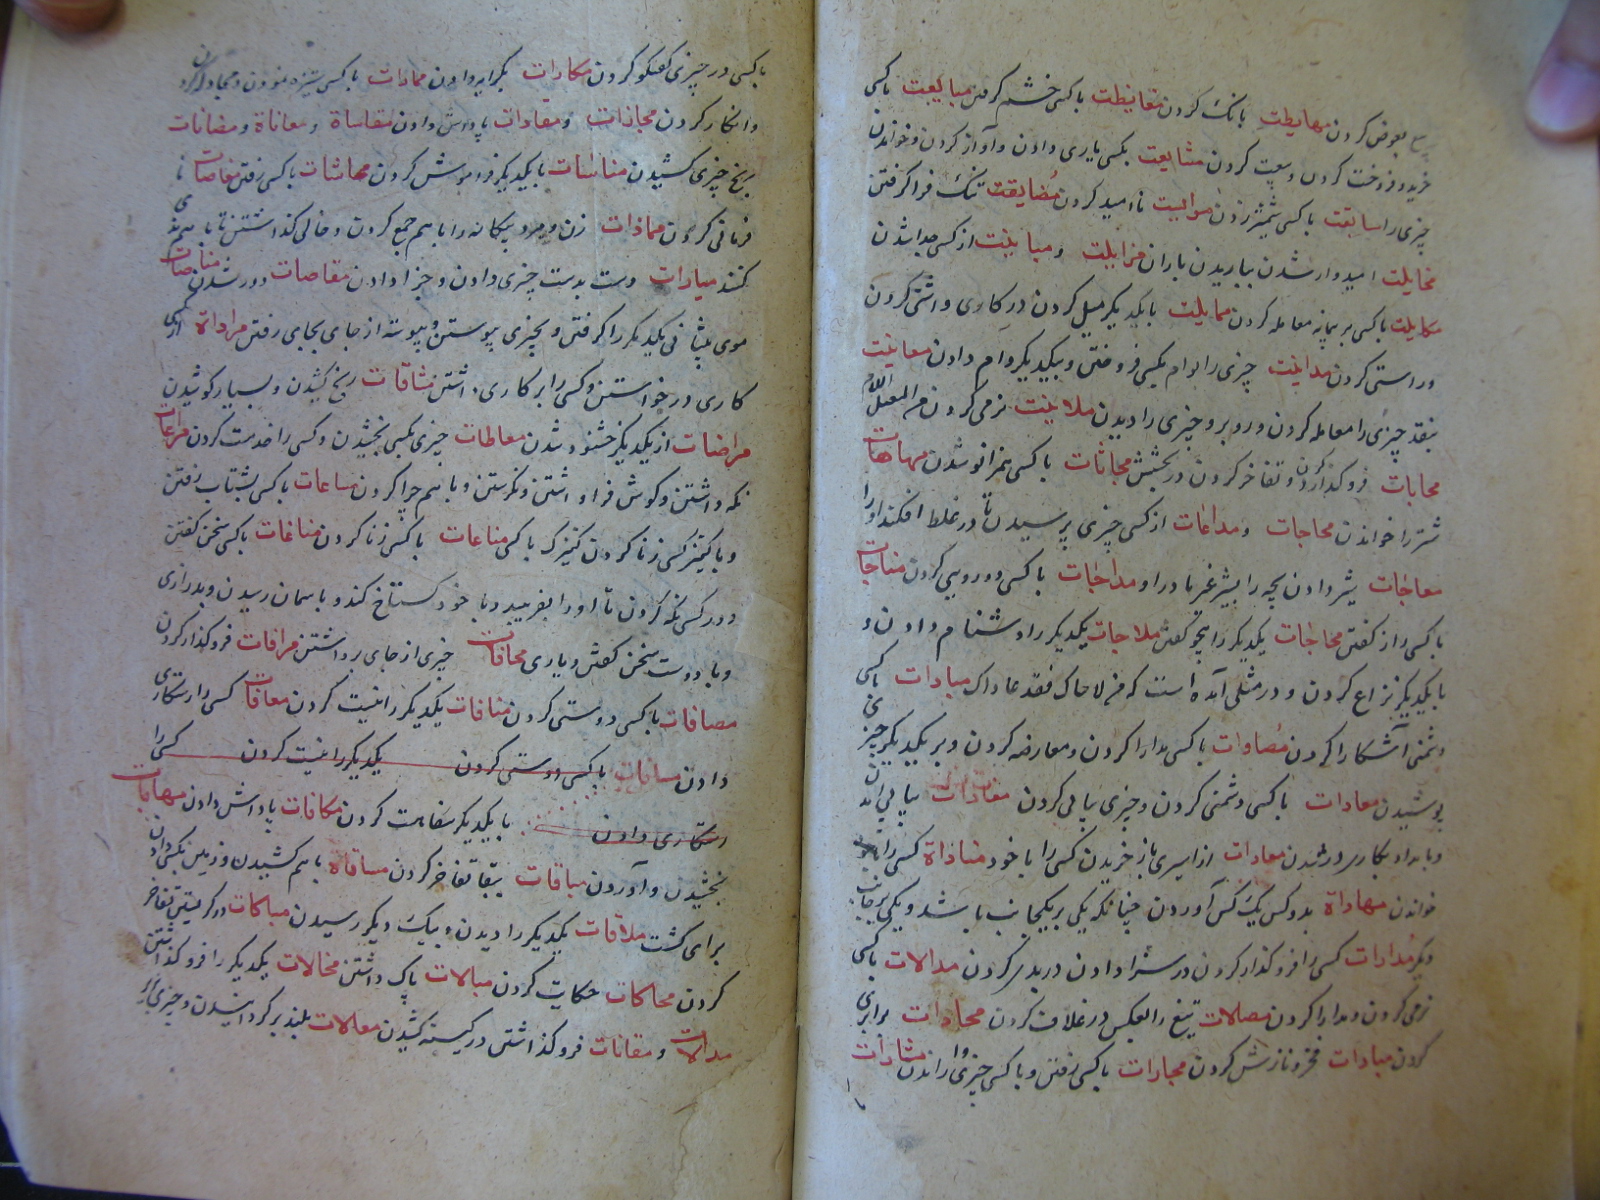 بعوض کردن مهایطت بانک کردن مغایظت با کسی خشم گرفتن مبایعت با کسی
خرید و فروخت کردن و بیعت کردن مشایعت بکسی یاری دادن و آواز کردن و خواندن
چیزی را سایفت با کسی شمشیر زدن موایست ناامید کردن مضایقت تنک فرا گرفتن
مخایلت امیدوار شدن بباریدن باران مزایلت و مباینت از کسی جدا شدن
مکایلت با کسی بر پیمانه معامله کردن ممایلت با یکدیگر میل کردن در کاری و اشتی کردن
و راستی کردن مداینت چیزی را بوام بکسی فروختن و بیکدیگر وام دادن معاینت
بنقد چیزی را معامله کردن و روبرو چیزی را دیدن ملاینت نرمی کردن من المعتل اللام
محابات فروگذار کردن و تفاخر کردن در بخشش مجاثات با کسی همزانو شدن مهاهات
شتر را خواندن محاجات و مداعات از کسی چیزی پرسیدن تا در غلط افکند او را
معاجات شیر دادن بچه را بشیر غیر مادر او مداجات با کسی دورویی کردن مناجات
با کسی راز گفتن محاجات یکدیگر را هجو گفتن ملاحات یکدیگر را دشنام دادن و
با یکدیگر نزاع کردن و در مثلی آمده است که من لاحاک فقد عاداک مبادات با کسی
دشمنی آشکارا کردن مصادات با کسی مدارا کردن و معارضه کردن و بر یکدیگر چیزی
پوشیدن معادات با کسی دشمنی کردن و چیزی پیاپی کردن مغادات پیاپی آمدن
و بامداد بکاری در شدن مفادات از اسیری باز خریدن کسی را با خود مناداة کسی را
خواندن مهاداة بدو کس یک کس آوردن چنانکه یکی بر یکجانب باشد و یکی بر جانب
دیگر مدارات کسی را فروگذار کردن در سزا دادن در بدی کردن مدالات با کسی
نرمی کردن و مدارا کردن مصالات تیغ را بعکس در غلاف کردن محاذات برابری
کردن مبارات فخر و نازش کردن مجارات با کسی رفتن و با کسی چیزی را راندن مشارات
با کسی در چیزی گفتگو کردن مکارات بکرایه دادن ممارات با کسی ستیزه نمودن و مجادله کردن
و انکار کردن مجازات و مقادات پاداش دادن مقاساة و معاناة و مضانات
برنج چیزی کشیدن مناسات با یکدیگر فراموش کردن مماشات با کسی رفتن معاصات نا
فرمانی کردن مماذات زن و مرد بیکانه را با هم جمع کردن و خالی گذاشتن تا با هم بد
کنند میادات دست بدست چیزی دادن و جزا دادن مقاصات دور شدن مناصات
موی پیشانی یکدیگر را گرفتن و بچیزی پیوستن و پیوسته از جای بجای رفتن مراداة از کسی
کاری درخواستن و کسی را بر کاری داشتن مشاقات رنج کشیدن و بسیار کوشیدن
مراضات از یکدیگر خشنود شدن معاطات چیزی بکسی بخشیدن و کسی را خدمت کردن مراعات
نگه داشتن و گوش فرا داشتن و نگرستن و با هم چرا کردن ساعات با کسی بشتاب رفتن
و با کنیزک کسی زنا کردن کنیزک با کسی مناعات با کسی زنا کردن مناغات با کسی سخن گفتن
و در کسی نگه کردن تا او را بفریبد و با خود گستاخ کند و باسمان رسیدن و بدرازی
و با دوست سخن گفتن و یاری محافات چیزی از جای برداشتن مرافات فروگذار کردن
مصافات با کسی دوستی کردن منافات یکدیگر را نیست کردن معافات کسی را رستگاری
دادن مسافات با کسی دوستی کردن یکدیگر را نیست کردن کسی را
رستگاری دادن با یکدیگر سفاهت کردن مکافات پاداش دادن مهابات
بخشیدن و آوردن مباقات ببقا تفاخر کردن مساقاة با هم کشیدن و زمین بکسی دادن
برای کشت ملاقات یکدیگر را دیدن و بیک دیگر رسیدن مباکات در گریستن تفاخر
کردن محاکات حکایت کردن مبالات باک داشتن مخالات یکدیگر را فروگذاشتن
مدالات و مقانات فروگذاشتن در کیسه کشیدن معالات بلند برگردانیدن و چیزی از